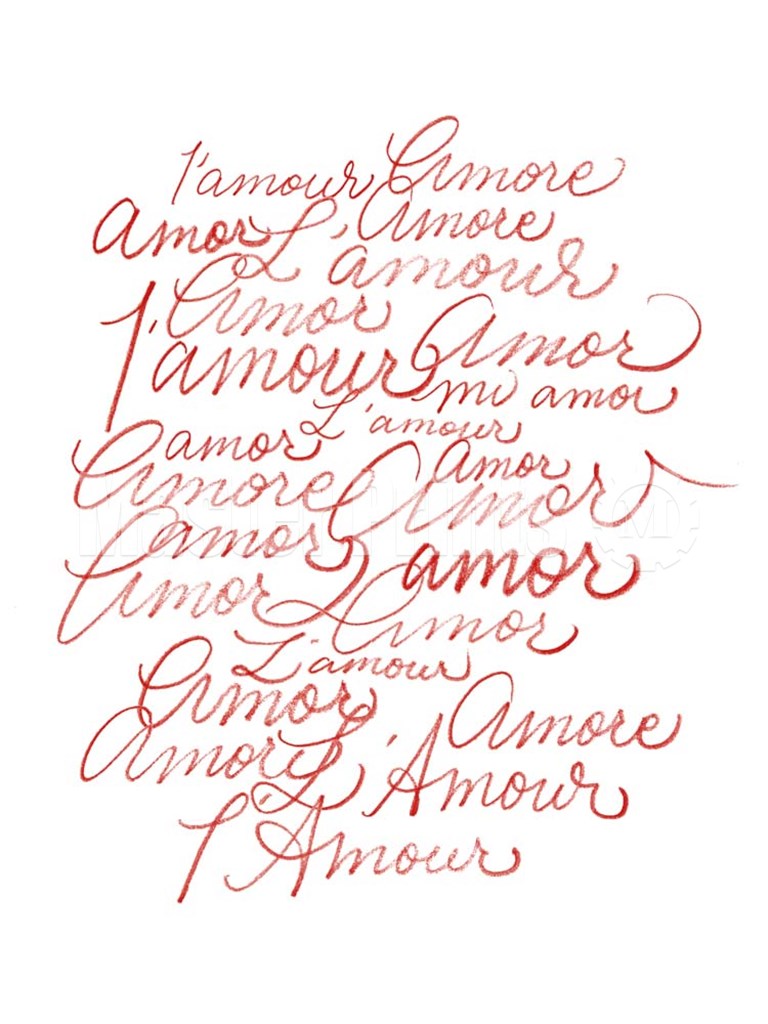 l'amour Amore
Amor Amore
L'amour
Amor
l'amour Amor
mi amor
L'amour
amor Amor
Amore Amor
amor amor
Amor Amor
L'amour
Amor Amore
Amor L'Amour
l'Amour